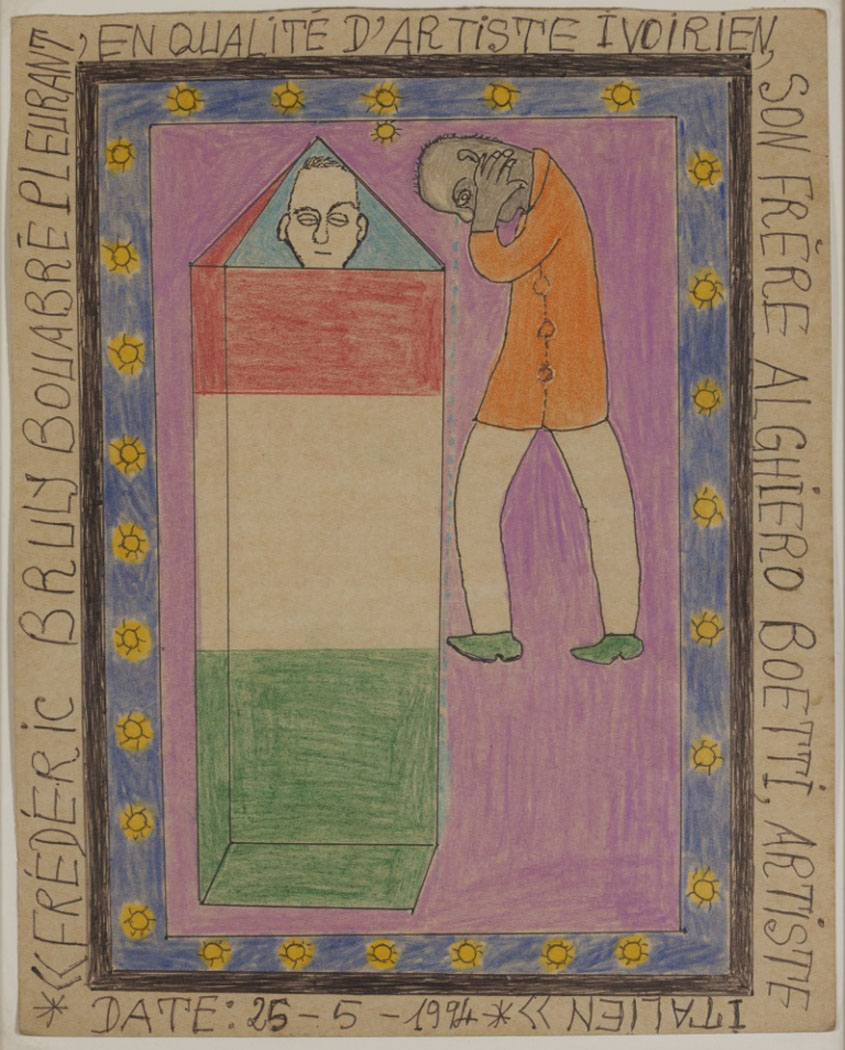 *«FRÉDÉRIC BRULY BOUABRÉ PLEURANT,
EN QUALITÉ D'ARTISTE IVOIRIEN,
SON FRÈRE ALGHIERO BOETTI, ARTISTE
ITALIEN»*
DATE: 25-5-1994